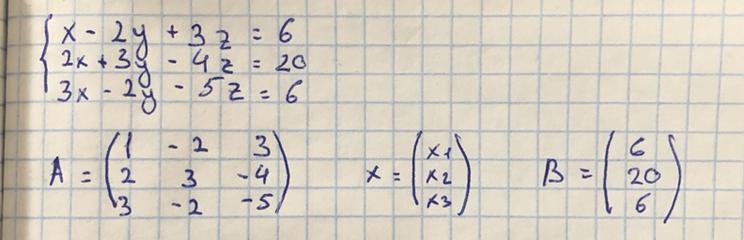 x - 2y + 3z = 6
2x + 3y - 4z = 20
3x - 2y - 5z = 6
A = (1 -2 3
2 3 -4
3 -2 -5)
x = (x1
x2
x3)
B = (6
20
6)